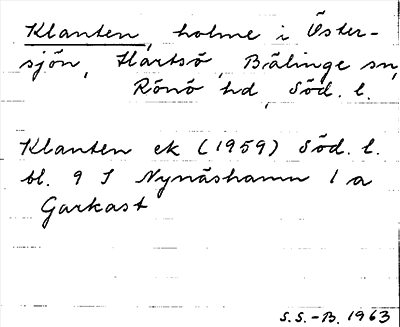 Klanten, holme i Öster-
sjön, Hartsö, Bälinge sn,
Rönö hd, Söd. l.
Klanten ek (1959) Söd. l.
bl. 9 I Nynäshamn 1 a
Garkast
S.S.-B. 1963